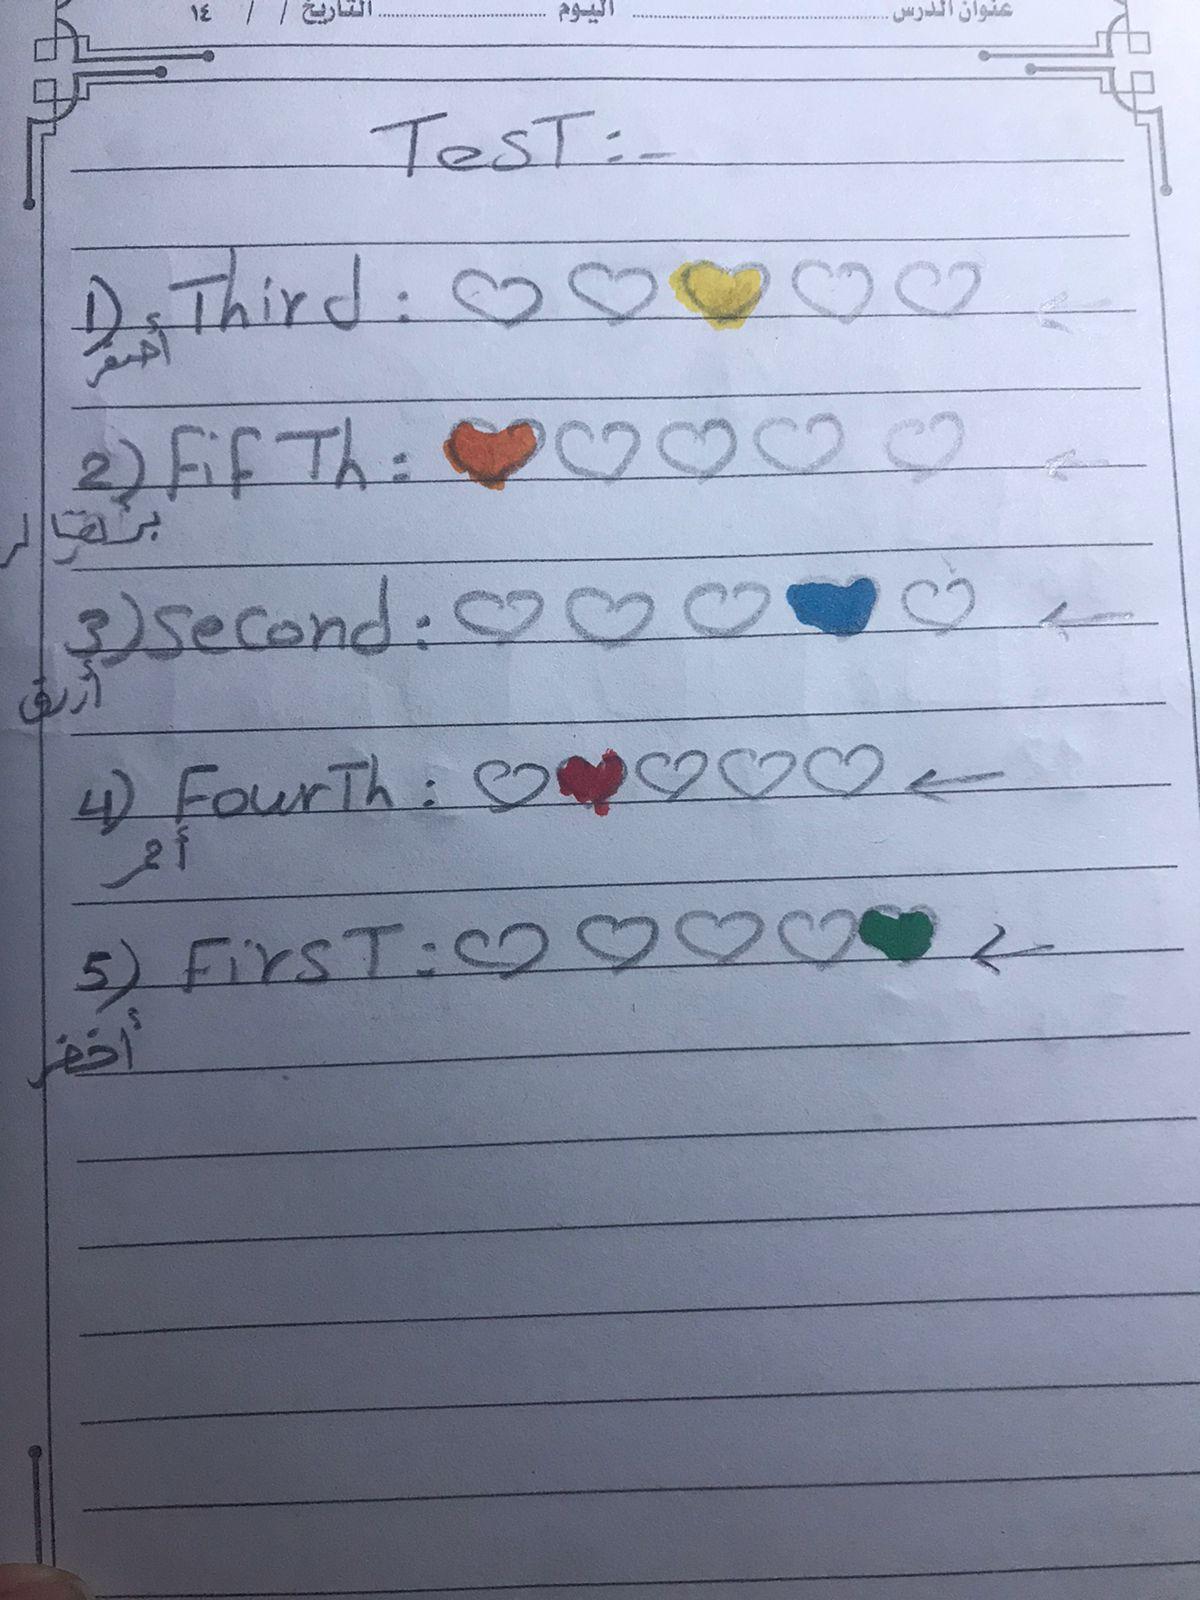 عنوان الدرس اليوم التاريخ / / ١٤
TesT:-
1) Third:
أصفر
2) FifTh:
برتقالر
3) Second:
أزرق
4) FourTh:
أحمر
5) FirsT:
أخضر